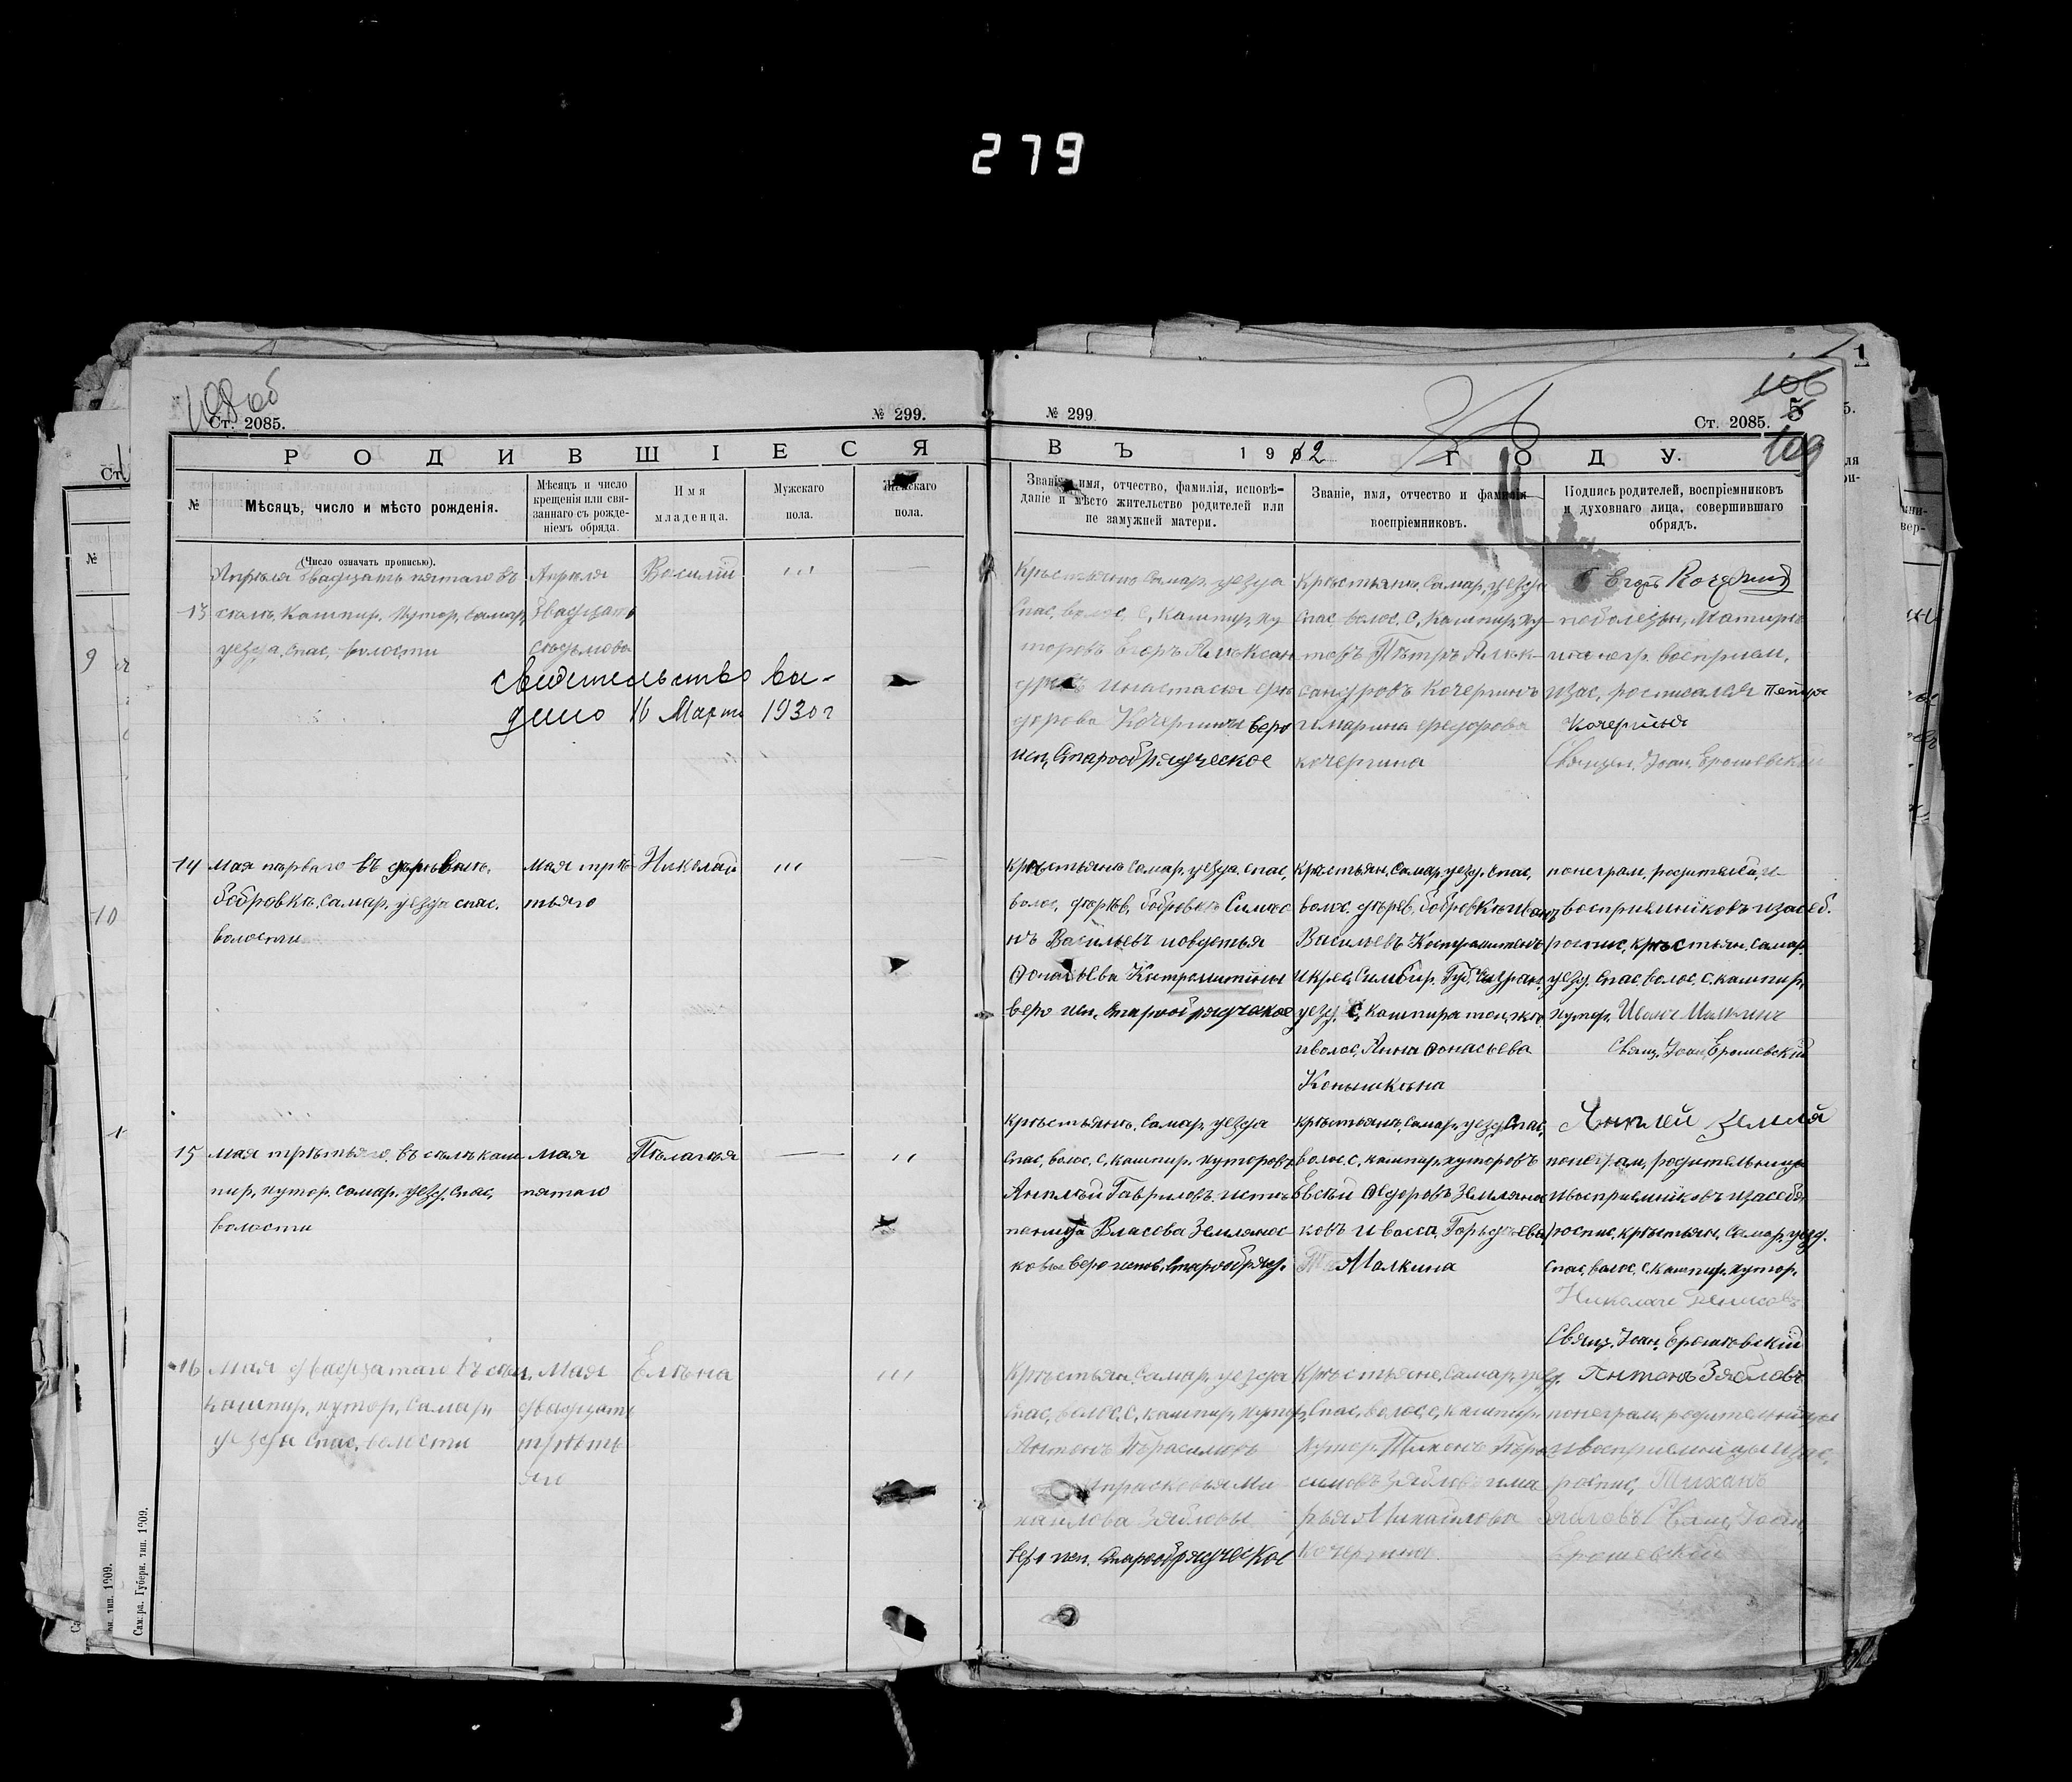 279
108 об
Ст. 2085.
№ 299.
РОДИВШІЕСЯ
№
Мѣсяцъ, число и мѣсто рожденія.
Мѣсяцъ и число
крещенія или свя-
заннаго съ рожде-
ніемъ обряда.
Имя
младенца.
Мужскаго
пола.
Женскаго
пола.
(Число означать прописью).
13
Апрѣля двадцать пятаго въ
сѣлѣ, Кашпир, хутор, Самар,
уезда, Спас, волости
Апрѣля
двадцать
седьмова
Василій
свидетельство вы-
дано 16 Марта 1930 г
14
мая пѣрваго въ дѣрѣвнѣ,
бобровкѣ, Самар, уезда спас.
волости
мая трѣ-
тьяго
Николай
15
мая трѣтьяго, въ сѣлѣ каш
пир, хутор. Самар. уезд. Спас,
волости
мая
пятаго
Пѣлагѣя
16
мая двадцатаго въ сѣл,
кашпир, хутор, Самар,
уезда Спас, волости
Мая
двадцать
трѣть
яго
Елѣна
Самара. Губерн. тип. 1909.
№ 299
Ст. 2085.
106
5
109
ВЪ 1912 ГОДУ.
Званіе, имя, отчество, фамилія, исповѣ-
даніе и мѣсто жительство родителей или
не замужней матери.
Званіе, имя, отчество и фамилія
воспріемниковъ.
Подпись родителей, воспріемниковъ
и духовнаго лица, совершившаго
обрядъ.
Крѣстьянѣ Самар, уезда
Спас, волос, С, Кашпир, ху
торовъ Егоръ Алѣксан
дровъ инастасья ѳѣ
дорова Кочергины веро
исп, Старообрядческое
Крѣстьянѣ, Самар, уезда
Спас, волос, С, Кашпир, ху-
тор, Пѣтръ Алѣк-
сандровъ Кочергинъ
имарина ѳедорова
кочергина
Егоръ Кочергинъ
кочергина
Свящѣн, Іоан, Ерошевскій
крѣстьянѣ Самар, уезда, Спас,
волос, дѣрѣв, бобровкѣ Симео
нъ Васильевъ иовдотья
Ѳонасьева Костромитины
веро исп, Старообрядческое
крѣстьян, Самар, уезд. Спас,
волос. дѣрев. бобровкѣ Иванъ
Васильевъ Костромитинъ
икрес, Симбир, Губ, Сызран,
уезд, С, Кашпира той, жѣ
иволос, Анна Ѳонасьева
Конышкина
понеграм, родителей, и
восприемниковъ изасеб.
роспис, крѣстьян, Самар,
уезд, Спас, волос, С. кашпир,
хутор, Иванъ Малкинъ
Свящ, Іоан, Ерошевскій
крѣстьянѣ, Самар, уезда
Спас, волос, С, кашпир, хуторовъ
Анѳѣлъй Гавриловъ исте
понида Власова Земленос
ковы веро испов, Старообряд,
крѣстьянѣ, Самар, уезд, Спас,
волос, С, кашпир, хуторовъ
Евсѣй Ѳедоровъ Землянос
ковъ и васса, Горьдеева,
Малкина
понеграм, родительницы
ивосприемниковъ изасебя
роспис, крѣстьян, Самар, уезд.
Спас, волос, С, кашпир, хутор,
Николай Денисовъ
Свящ, Іоан, Ерошевскій
Крѣстьян, Самар, уезда
Спас, волос, С, кашпир, хутор,
Антонъ Гѣрасимовъ
ипрасковья Ми
хайлова Зябловы
веро исп. Старообрядческое
Крѣстьянѣ, Самар, уезд,
Спас, волос, С, кашпир,
хутор, Тихонъ Гѣра
симовъ Зябловъ има
рья Михайлова
Кочергина
Антонъ Зябловъ
понеграм, родительницы
ивосприемницы изас,
роспис, Тихонъ
Зябловъ Свящ, Іоан
Ерошевскій